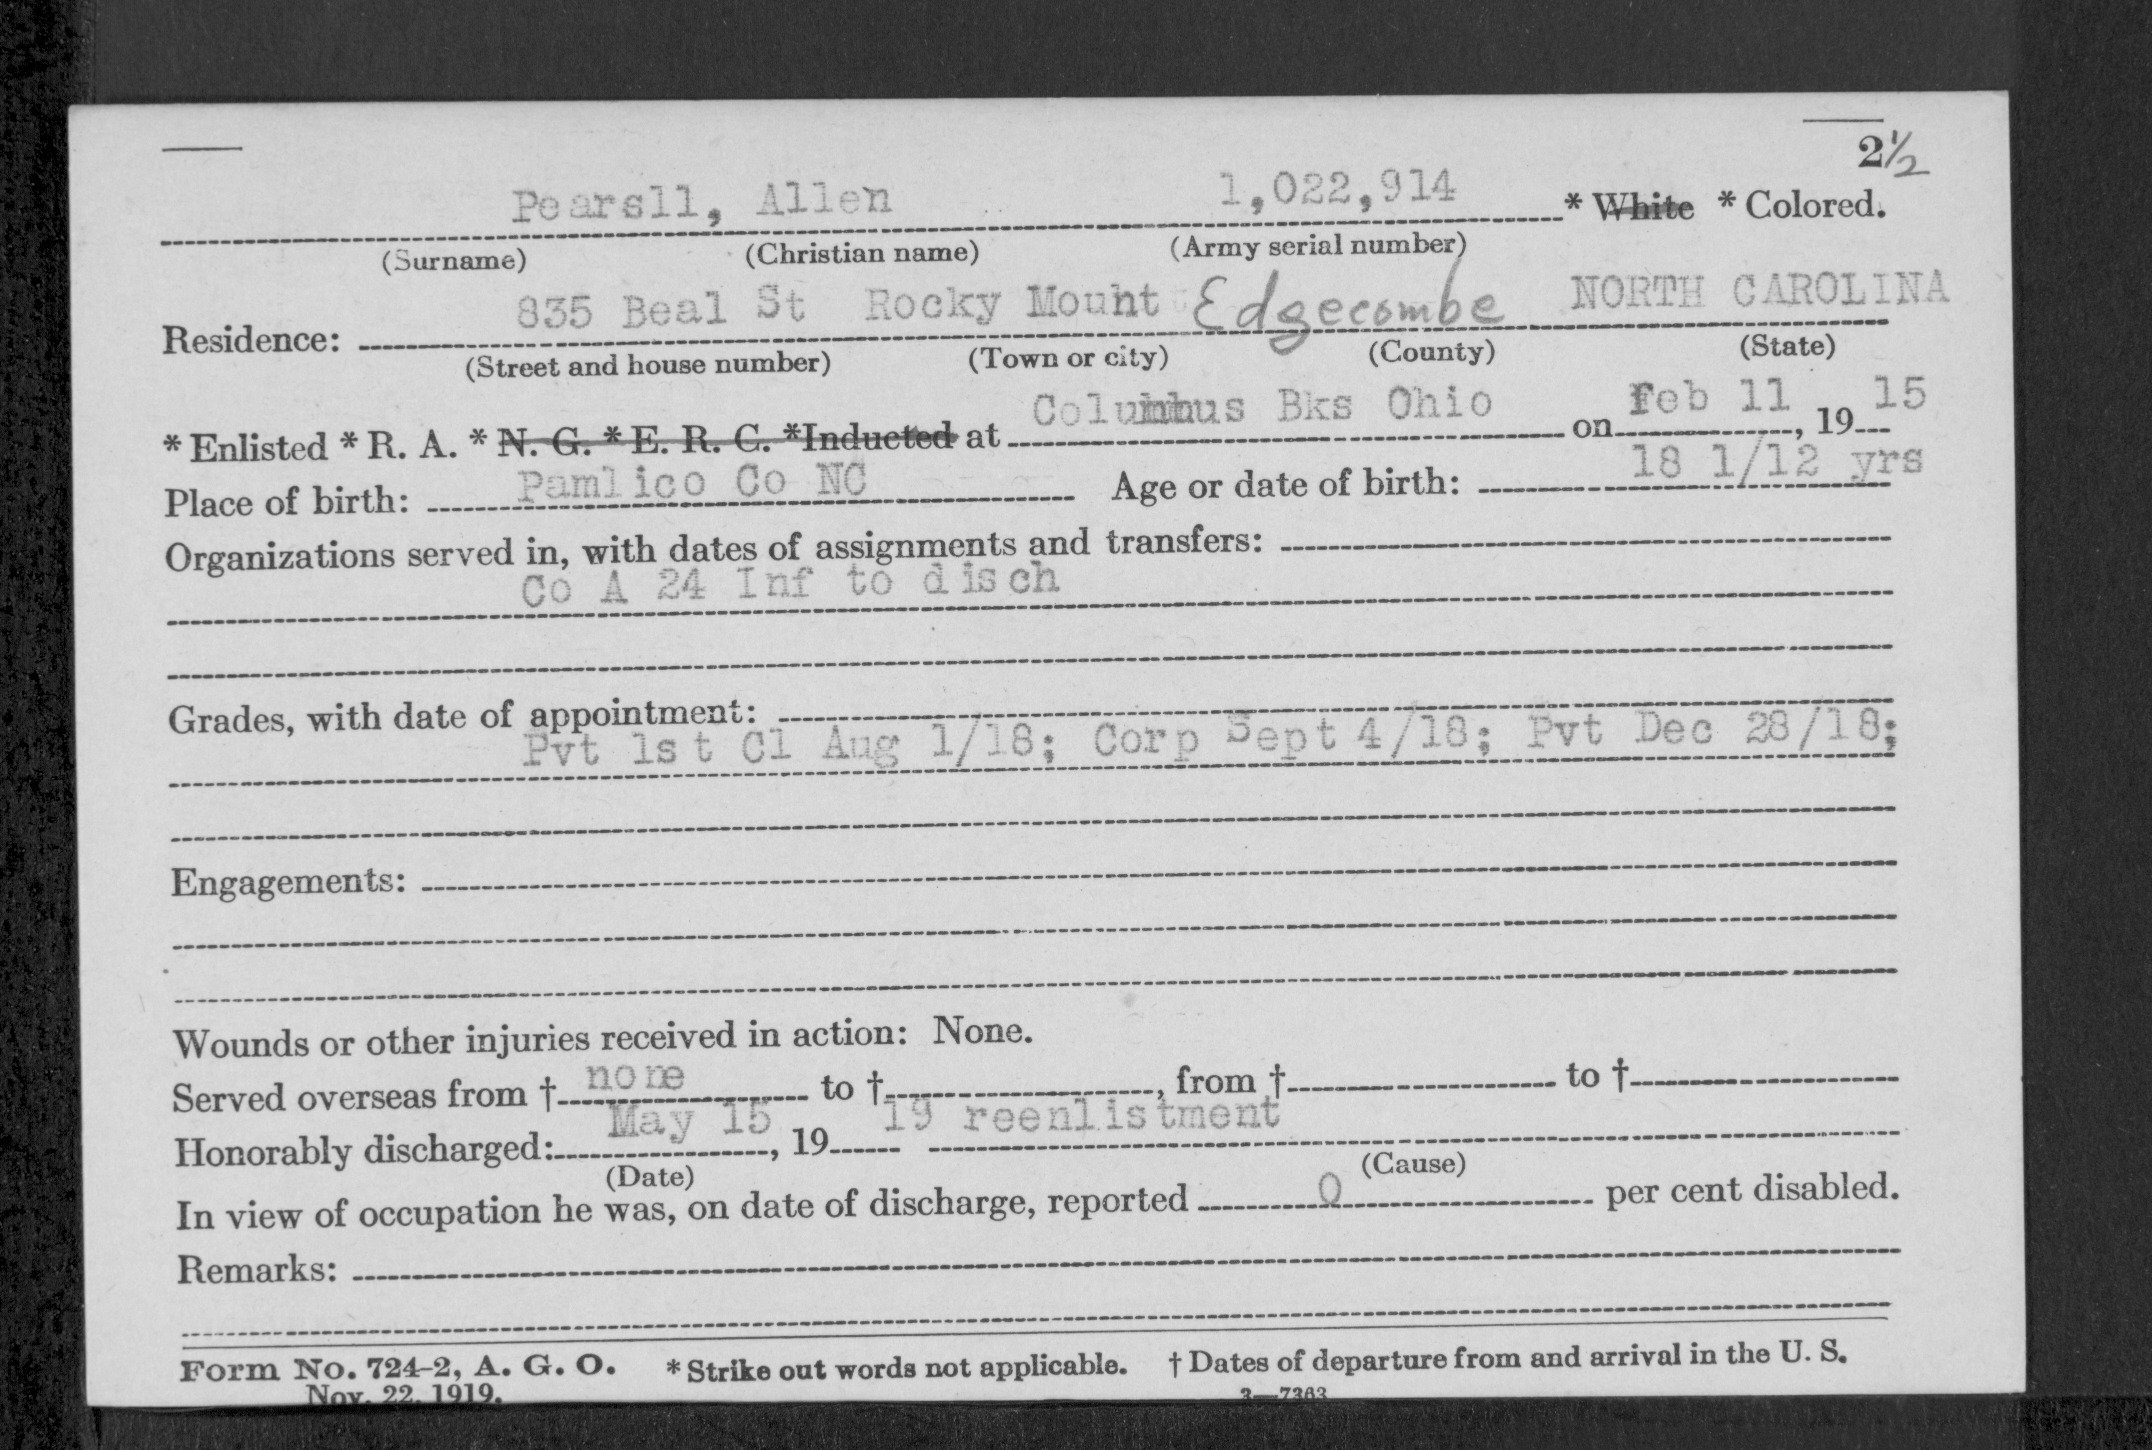 2 1/2
Pearsll, Allen 1,022,914 * White * Colored.
(Surname) (Christian name) (Army serial number)
Residence: 835 Beal St Rocky Mount Edgecombe NORTH CAROLINA
(Street and house number) (Town or city) (County) (State)
* Enlisted * R. A. * N. G. * E. R. C. * Inducted at Columbus Bks Ohio on Feb 11, 1915
Place of birth: Pamlico Co NC Age or date of birth: 18 1/12 yrs
Organizations served in, with dates of assignments and transfers:
Co A 24 Inf to disch
Grades, with date of appointment:
Pvt 1st Cl Aug 1/18; Corp Sept 4/18; Pvt Dec 28/18;
Engagements:
Wounds or other injuries received in action: None.
Served overseas from † none to †, from † to †
Honorably discharged: May 15, 19 19 reenlistment
(Date) (Cause)
In view of occupation he was, on date of discharge, reported 0 per cent disabled.
Remarks:
Form No. 724-2, A. G. O. * Strike out words not applicable. † Dates of departure from and arrival in the U. S.
Nov. 22, 1919. 3—7363